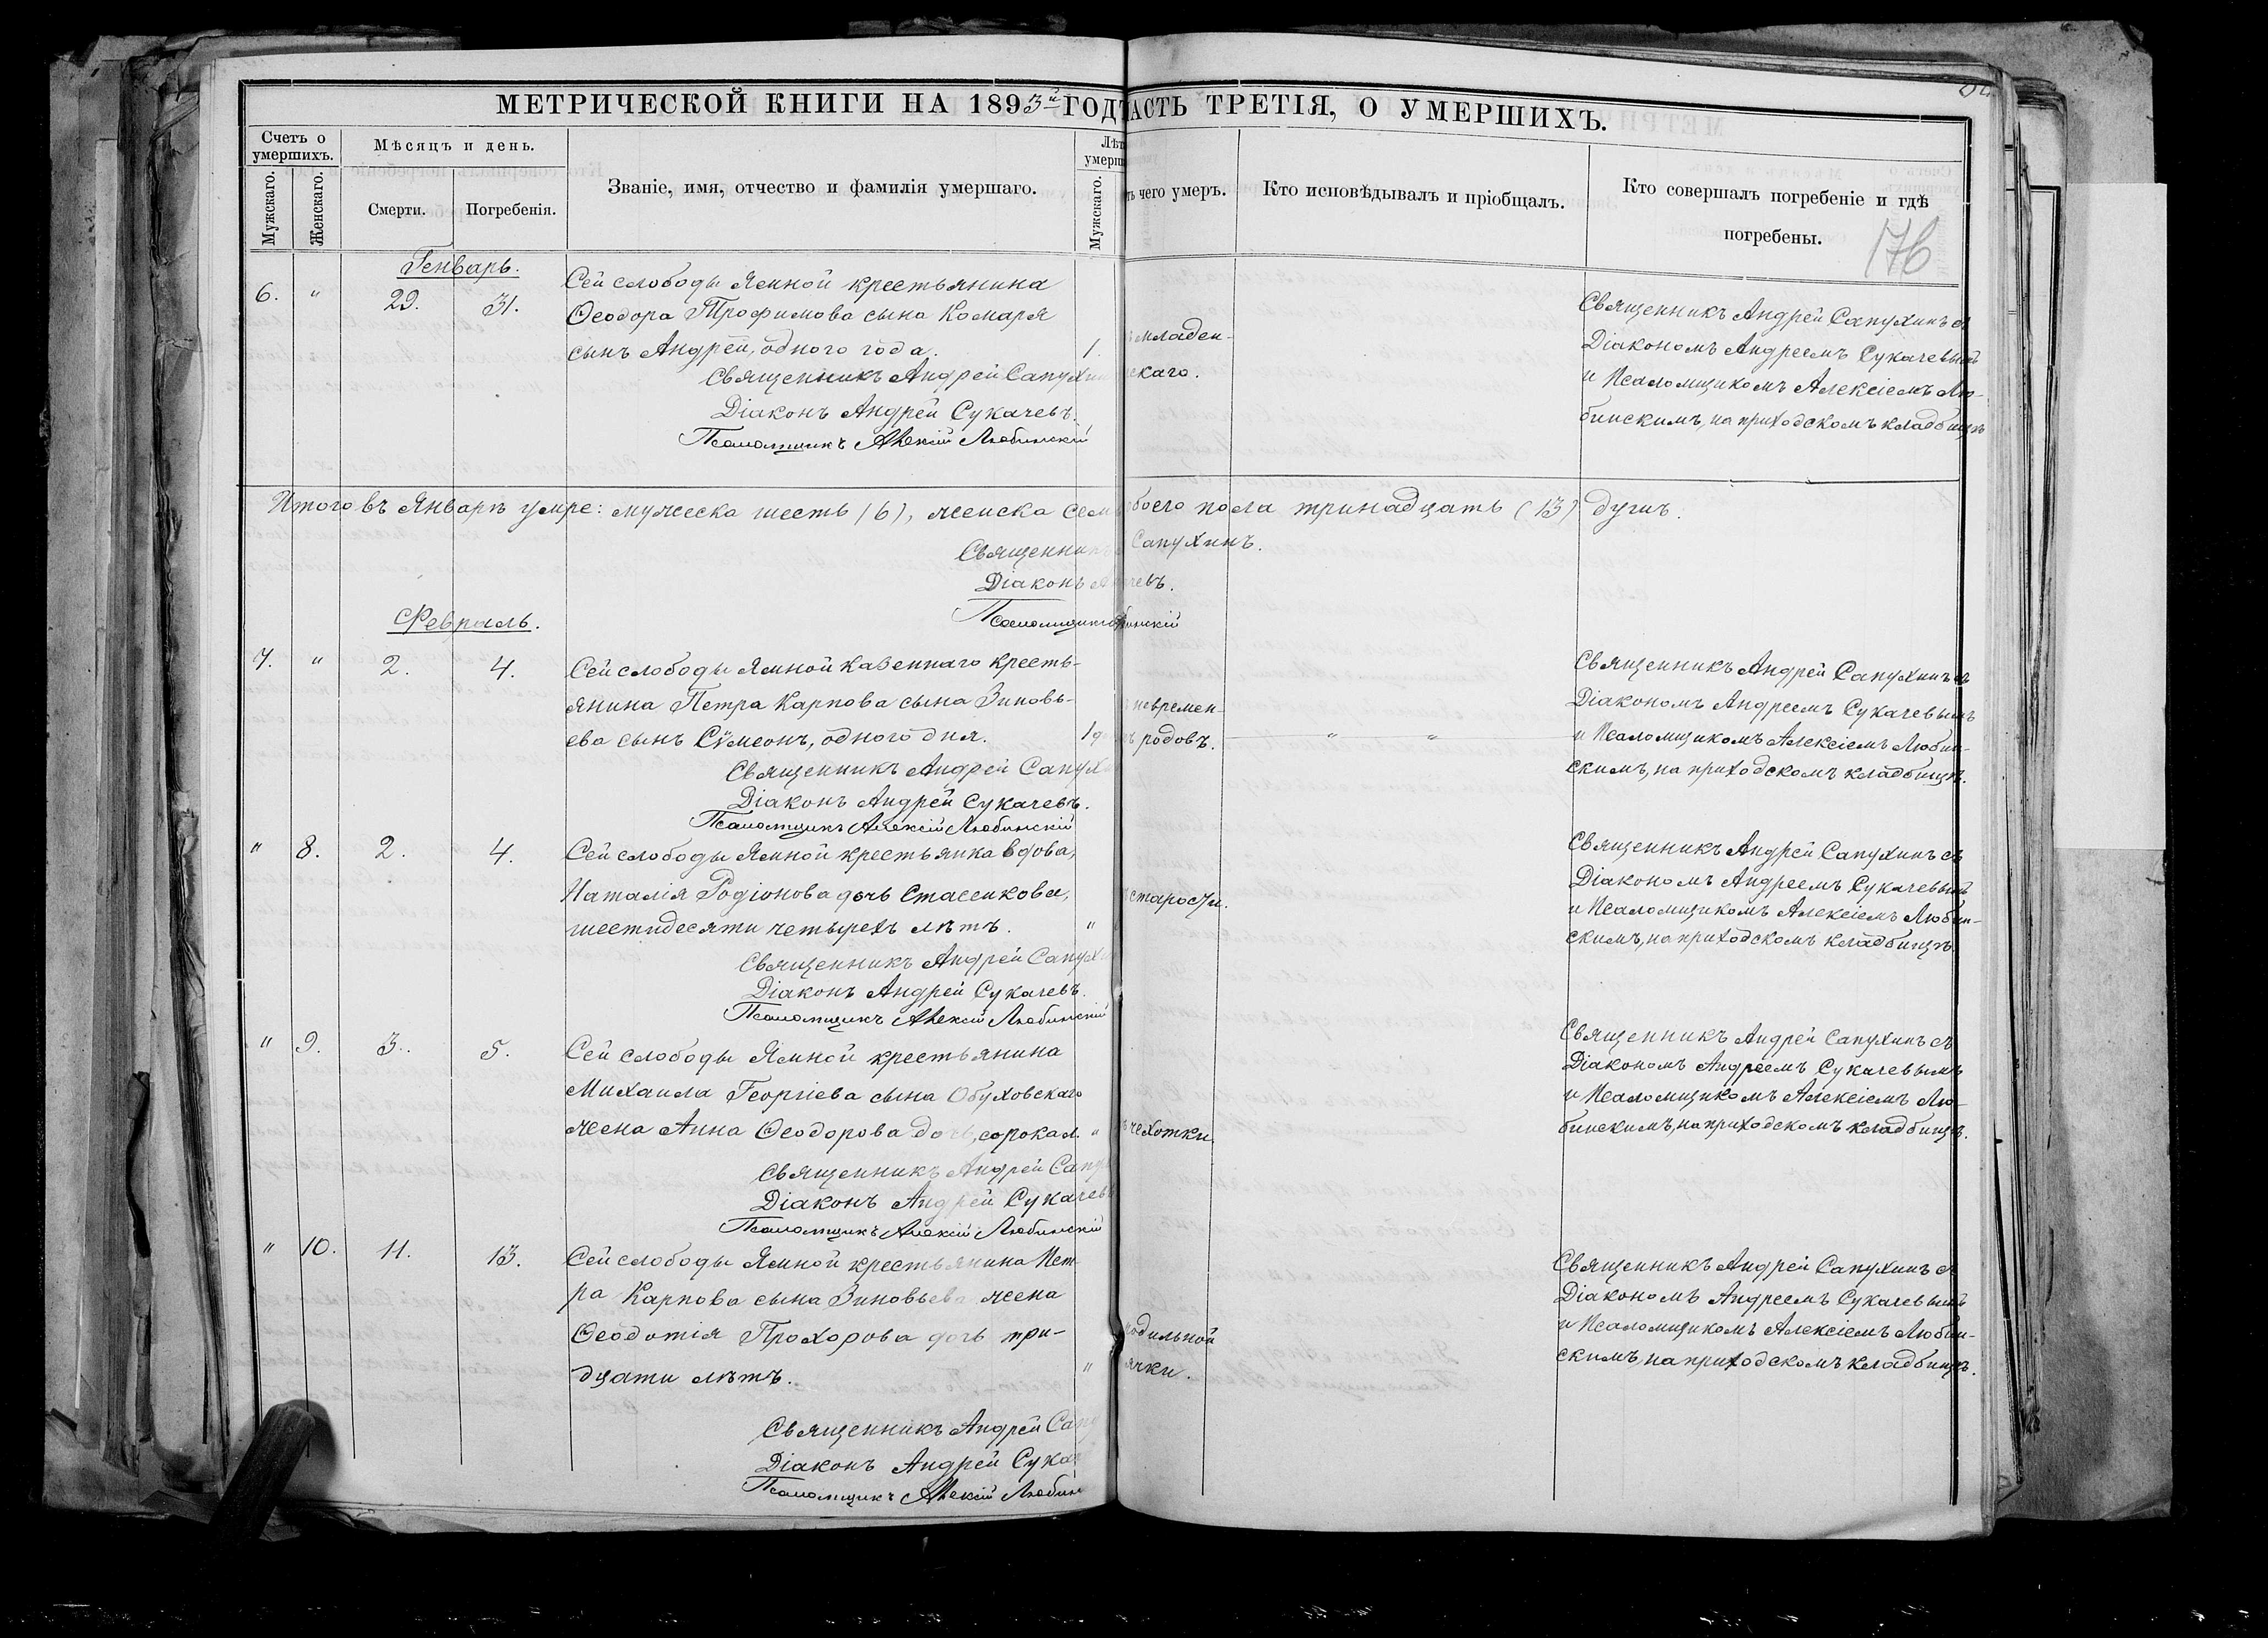 МЕТРИЧЕСКОЙ КНИГИ НА 1893й ГОД
АСТЬ ТРЕТІЯ, О УМЕРШИХЪ.
Счетъ о умершихъ.
Мужскаго.
Женскаго.
Мѣсяцъ и день.
Смерти.
Погребенія.
Званіе, имя, отчество и фамилія умершаго.
Лѣт
умерш
Мужскаго.
ъ чего умеръ.
Кто исповѣдывалъ и пріобщалъ.
Кто совершалъ погребеніе и гдѣ
погребены.
176
Генварь.
6. " 29. 31.
Сей слободы Ямной крестьянина
Ѳеодора Трофимова сына Комаря
сынъ Андрей, одного года. 1.
Священникъ Андрей Сапухин
Діаконъ Андрей Сукачевъ.
Псаломщикъ Алексій Любинскій
младен-
скаго.
Священникъ Андрей Сапухинъ съ
Діакономъ Андреемъ Сукачевымъ
и Псаломщикомъ Алексіемъ Лю-
бинскимъ, на приходскомъ кладбищѣ
Итого въ Январѣ умре: мужеска шесть (6), женска сем
обоего пола тринадцать (13) душъ.
Священникъ Сапухинъ.
Діаконъ чевъ.
Псаломщикъ бинскій
Февраль.
7. " 2. 4.
Сей слободы Ямной казеннаго кресть-
янина Петра Карпова сына Зиновь-
ева сынъ Сѵмеонъ, одного дня. 1д
Священникъ Андрей Сапухи
Діаконъ Андрей Сукачевъ.
Псаломщикъ Алексій Любинскій
невремен-
родовъ. " "
Священникъ Андрей Сапухинъ съ
Діакономъ Андреемъ Сукачевымъ
и Псаломщикомъ Алексіемъ Любин-
скимъ, на приходскомъ кладбищѣ.
" 8. 2. 4.
Сей слободы Ямной крестьянка вдова,
Наталія Родіонова дочь Стасенкова,
шестидесяти четырехъ лѣтъ. "
Священникъ Андрей Сапухи
Діаконъ Андрей Сукачевъ.
Псаломщикъ Алексій Любинскій
старости.
Священникъ Андрей Сапухинъ съ
Діакономъ Андреемъ Сукачевымъ
и Псаломщикомъ Алексіемъ Любин-
скимъ, на приходскомъ кладбищѣ.
" 9. 3. 5.
Сей слободы Ямной крестьянина
Михаила Георгіева сына Обуховскаго
жена Анна Ѳеодорова дочь, сорока л. "
Священникъ Андрей Сапух
Діаконъ Андрей Сукачевъ
Псаломщикъ Алексій Любинскій
чехотки.
Священникъ Андрей Сапухинъ съ
Діакономъ Андреемъ Сукачевымъ
и Псаломщикомъ Алексіемъ Лю-
бинскимъ, на приходскомъ кладбищѣ.
" 10. 11. 13.
Сей слободы Ямной крестьянина Пет-
ра Карпова сына Зиновьева жена
Ѳеодотія Прохорова дочь три-
дцати лѣтъ. "
Священникъ Андрей Сап
Діаконъ Андрей Сукач
Псаломщикъ Алексій Любин
одильной
ячки.
Священникъ Андрей Сапухинъ съ
Діакономъ Андреемъ Сукачевымъ
и Псаломщикомъ Алексіемъ Любин-
скимъ, на приходскомъ кладбищѣ.